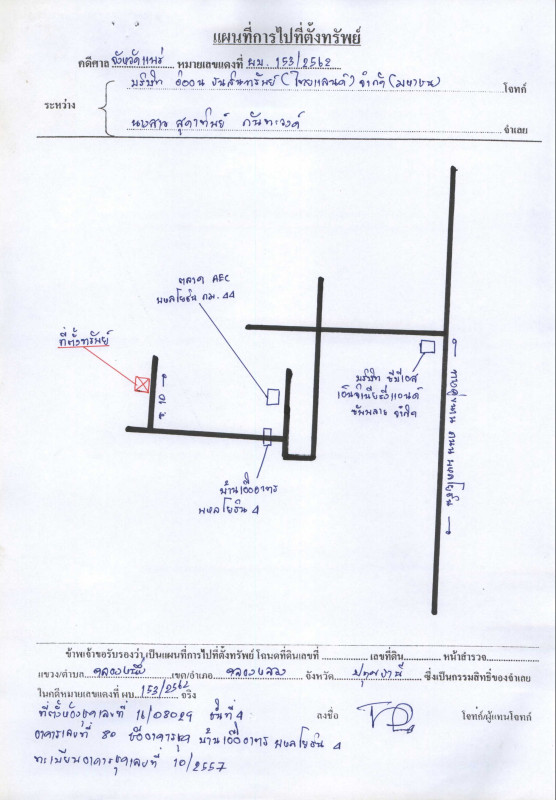 แผนที่การไปที่ตั้งทรัพย์
คดีศาล จังหวัดแพร่ หมายเลขแดงที่ ผบ. 153/2562
บริษัท อิออน ธนสินทรัพย์ (ไทยแลนด์) จำกัด (มหาชน) โจทก์
ระหว่าง
นางสาว สุดาทิพย์ กันทะวงค์ จำเลย
ตลาด AEC
พหลโยธิน กม. 44
ที่ตั้งทรัพย์
บริษัท
เอ็นจิเนียริ่งแอนด์
ซัพพลาย จำกัด
ถนน พหลโยธิน
บ้านเอื้ออาทร
พหลโยธิน 4
ข้าพเจ้าขอรับรองว่าเป็นแผนที่การไปที่ตั้งทรัพย์ โฉนดที่ดินเลขที่ เลขที่ดิน หน้าสำรวจ
แขวง/ตำบล คลองหนึ่ง เขต/อำเภอ คลองหลวง จังหวัด ปทุมธานี ซึ่งเป็นกรรมสิทธิ์ของจำเลย
ในคดีหมายเลขแดงที่ ผบ. 153/2562 จริง
ที่ตั้งห้องชุดเลขที่ ชั้นที่ 4 ลงชื่อ โจทก์/ผู้แทนโจทก์
อาคารเลขที่ 80 ชื่ออาคารชุด บ้านเอื้ออาทร พหลโยธิน 4
ทะเบียนอาคารชุดเลขที่ 10/2557